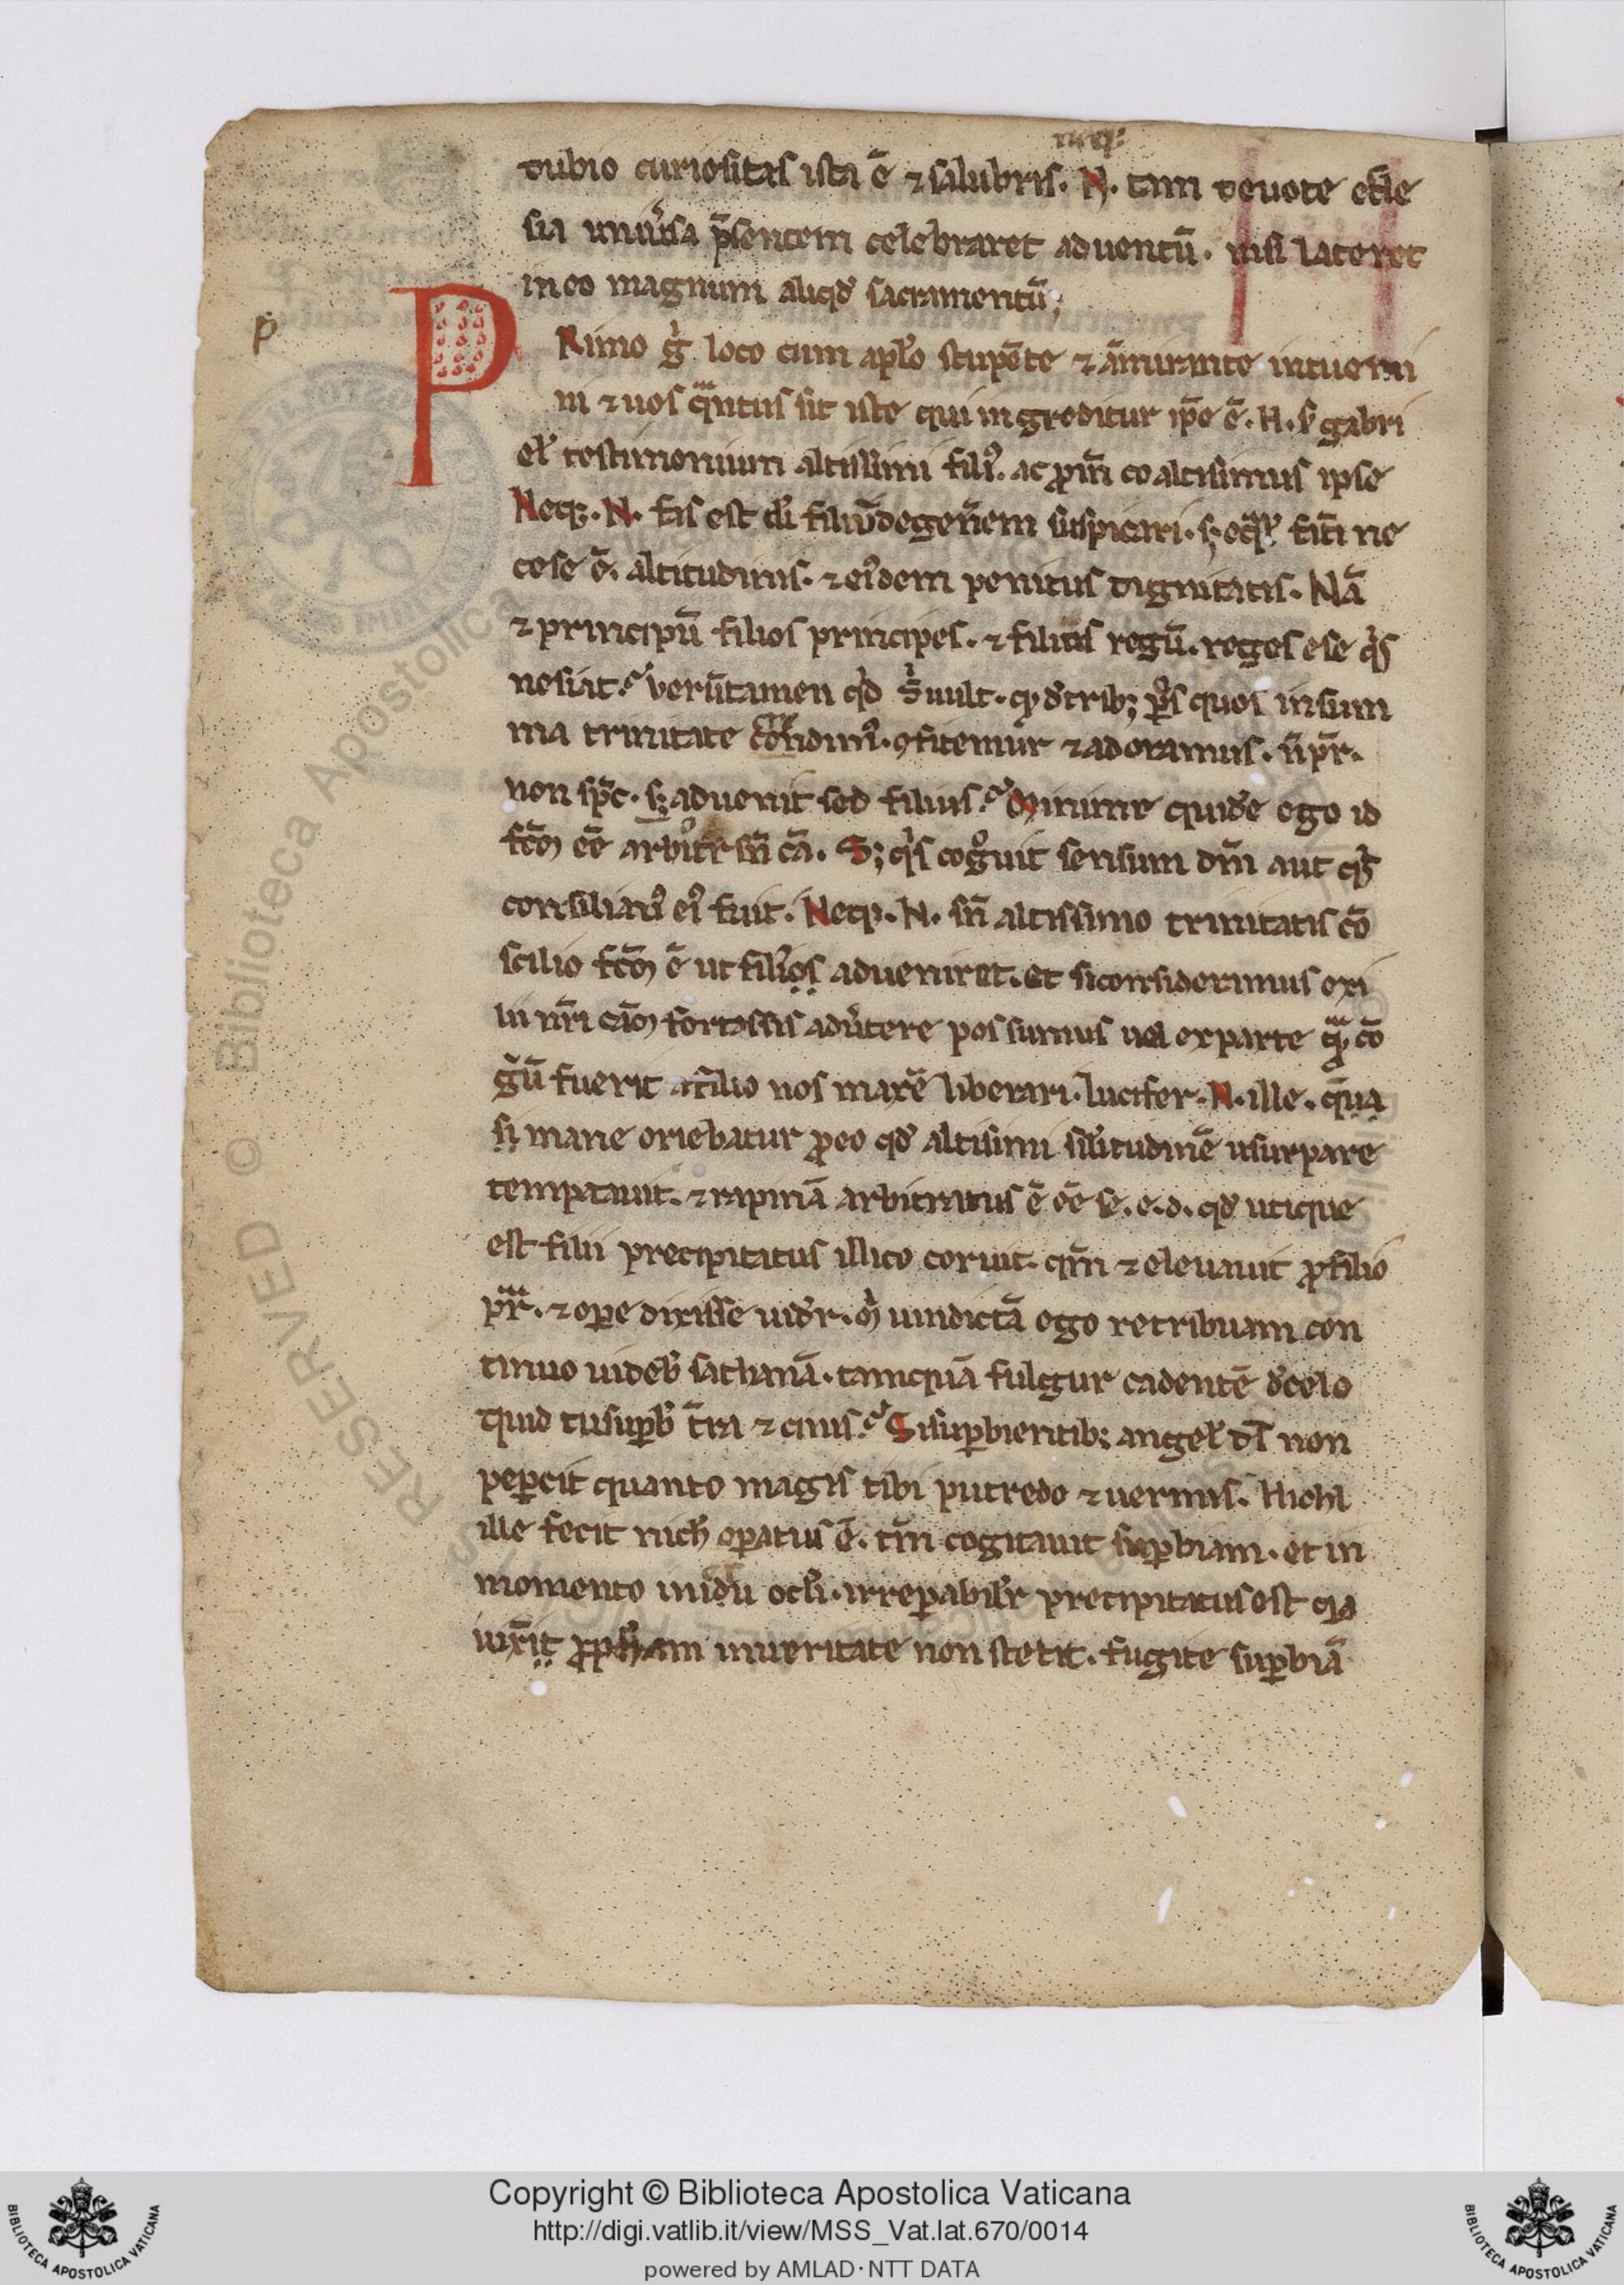 neqꝫ
dubio curiositas ista ē ⁊ salubris. N. tam deuote eccle
sia uniũsa p̄sentem celebraret aduentū. nisi lateret
in eo magnum aliqd̛ sacramentū;
p
PRimo g̊ loco cum apl̛o stupēte ⁊ āmirante intuemi
ni ⁊ uos qͣntus sit iste qui ingreditur ip̄e ē. N. s̛ gabri
el̛ testimonium altissimi filiꝰ. ac ꝓin̄ coaltisimus ipse
Necꝫ. N. fas est di̛ filiū degen̄em suspicari. sꝫ eqͣl̛ fat̄i ne
cese ē. altitudinis. ⁊ eiꝰdem penitus dignitatis. Nā
⁊ principū filios principes. ⁊ filius regū. reges ese qͥs
nesiat. verūtamen qͥd s̄ uult. qꝫ d̛ tribꝫ ꝑs̛ quos in sum
ma trinitate credimꝰ. ꝯfitemur ⁊ adoramus. n̄ pr̄.
non sp̄c. sꝫ aduenit sed filius. Minime quidē ego id
fc̄m eē arbitr̛ sn̄ cā. Sꝫ qͥs cognouit sensum dn̄i aut qͥs
consiliariꝰ eiꝰ fuit. Necꝫ. N. sn̄ altissimo trinitatis cō
scilio fc̄m ē ut filios adueniret. et si considerimus exi
lii nr̄i cām fortassis adūtere possumus uel exparte qͣꝫ cō
gͦū fuerit a filio nos maxē liberari. lucifer. N. ille. qͣua
si mane oriebatur ꝓeo qd̛ altisimi sil̛itudinē usurpare
tempatauit. ⁊ rapinā arbitratus ē eē se. e. d. qd̛ utique
est filii precipitatus illico coruit. qm̄ ⁊ eleuauit ꝓ filio
pr̄. ⁊ oꝑe dixisse uid̛r. m̊ uindictā ego retribuam con
tinuo uideb̛ sathanā. tamquā fulgur cadentē d̛celo
quid tu suꝑb̛ t̄ra ⁊ cinis. Si suꝑbientibꝫ angel̛ ds̄ non
peꝑcit quanto magis tibi putredo ⁊ uermis. Nichl
ille fecit nich̛ oꝑatus ē. tm̄ cogitauit suꝑbiam. et in
momento in idu ocl̛i. irreꝑabil̛r precipitatus est qꝫ
in ueritate non stetit. fugite suꝑbiā
© Biblioteca Apostolica
RESERVED
Copyright © Biblioteca Apostolica Vaticana
http://digi.vatlib.it/view/MSS_Vat.lat.670/0014
powered by AMLAD·NTT DATA
BIBLIOTECA APOSTOLICA VATICANA
BIBLIOTECA APOSTOLICA VATICANA